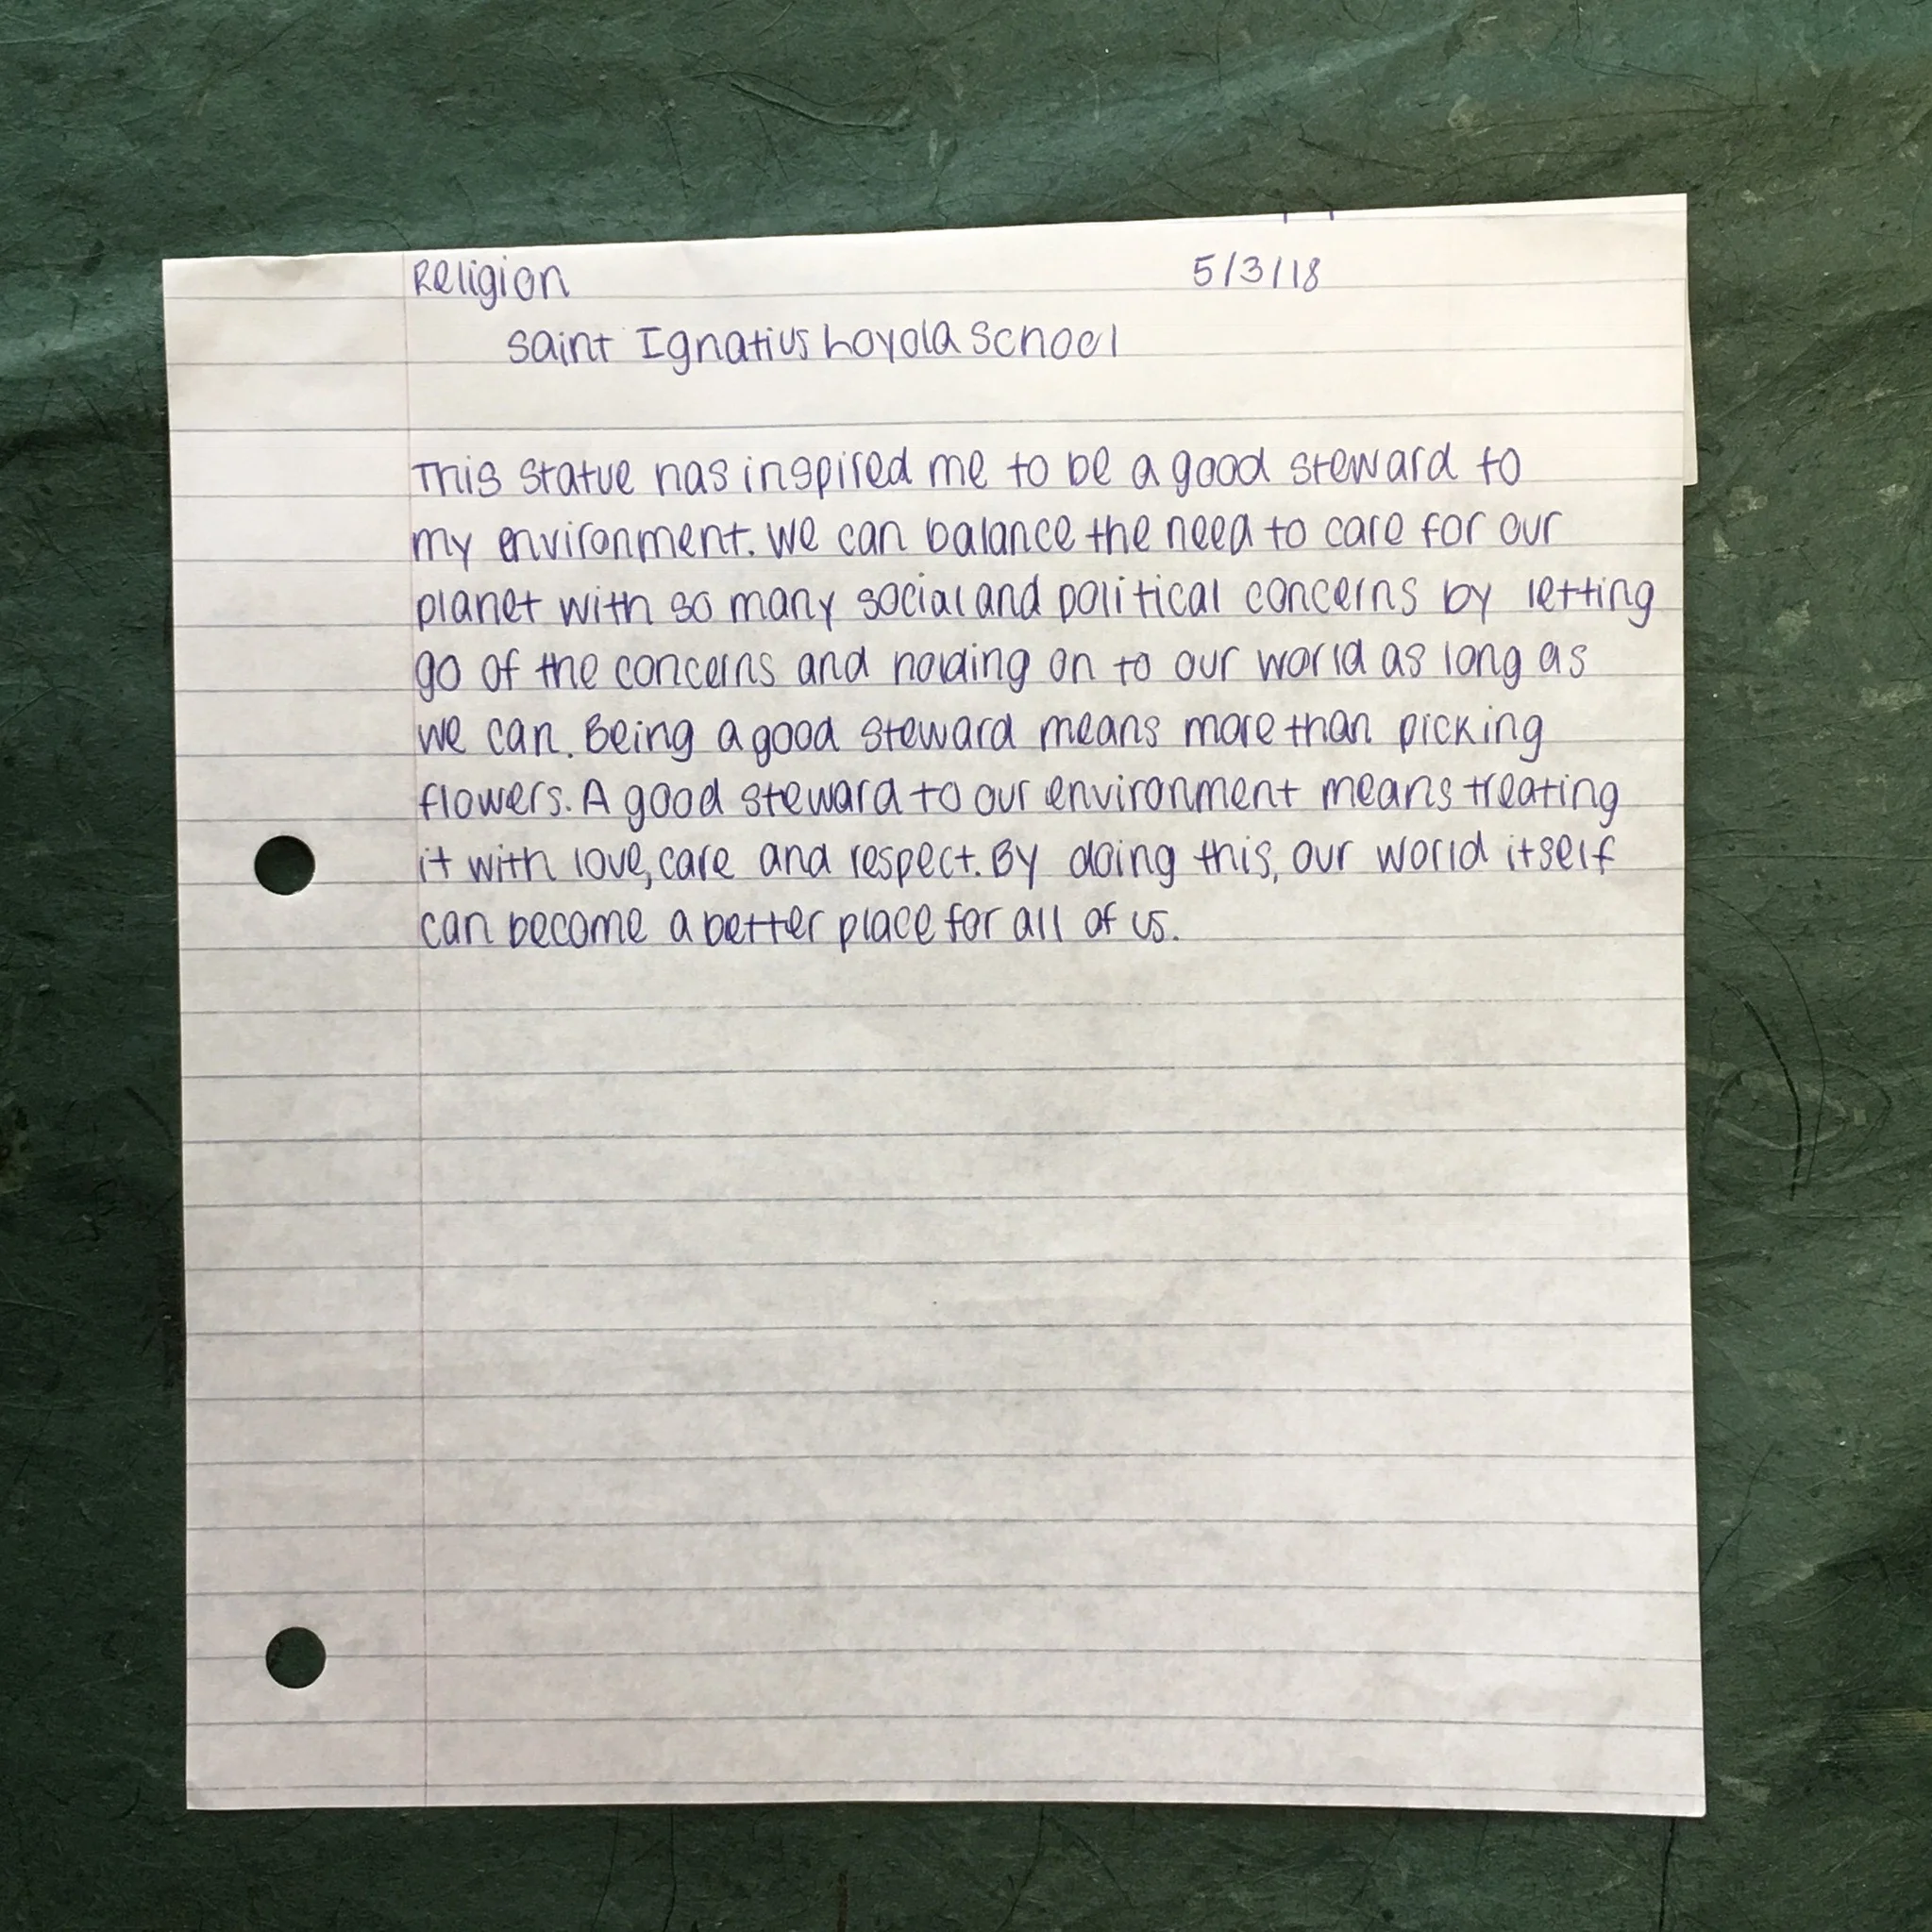 Religion 5/3/18
Saint Ignatius Loyola School
This statue has inspired me to be a good steward to
my environment. We can balance the need to care for our
planet with so many social and political concerns by letting
go of the concerns and holding on to our world as long as
we can. Being a good steward means more than picking
flowers. A good steward to our environment means treating
it with love, care and respect. By doing this, our world itself
can become a better place for all of us.